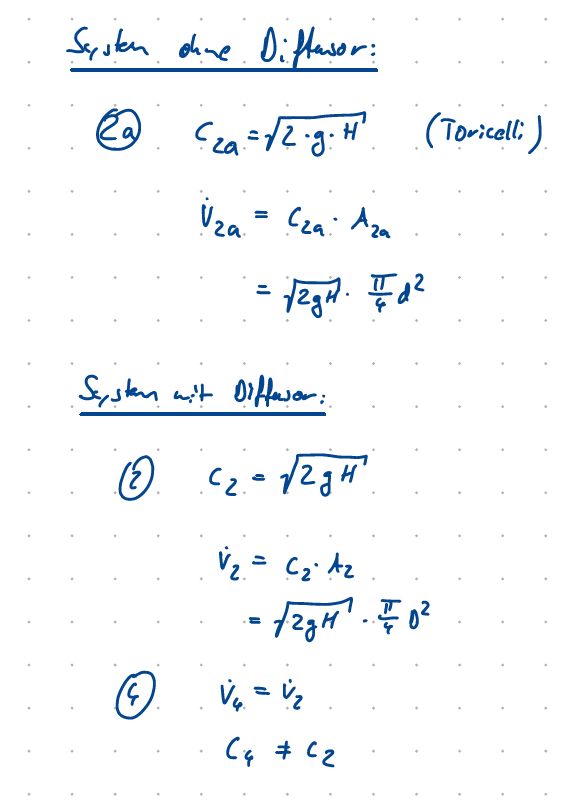 System ohne Diffusor:
2a C₂ₐ = √(2·g·H) (Toricelli)
V̇₂ₐ = C₂ₐ · A₂ₐ
= √(2gH) · π/4 d²
System mit Diffusor:
2 C₂ = √(2gH)
V̇₂ = C₂ · A₂
= √(2gH) · π/4 D²
4 V̇₄ = V̇₂
C₄ ≠ C₂